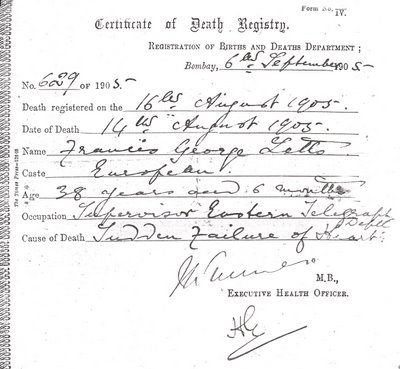 Form No. IV.
Certificate of Death Registry.
REGISTRATION OF BIRTHS AND DEATHS DEPARTMENT;
Bombay, 6th September 1905
No. 629 OF 1905.
Death registered on the 16th August 1905.
Date of Death 14th August 1905.
Name Francis George Letts
Caste European.
Age 38 years and 6 months
Occupation Supervisor Eastern Telegraph Deptt
Cause of Death Sudden Failure of Heart.
M.B.,
EXECUTIVE HEALTH OFFICER.